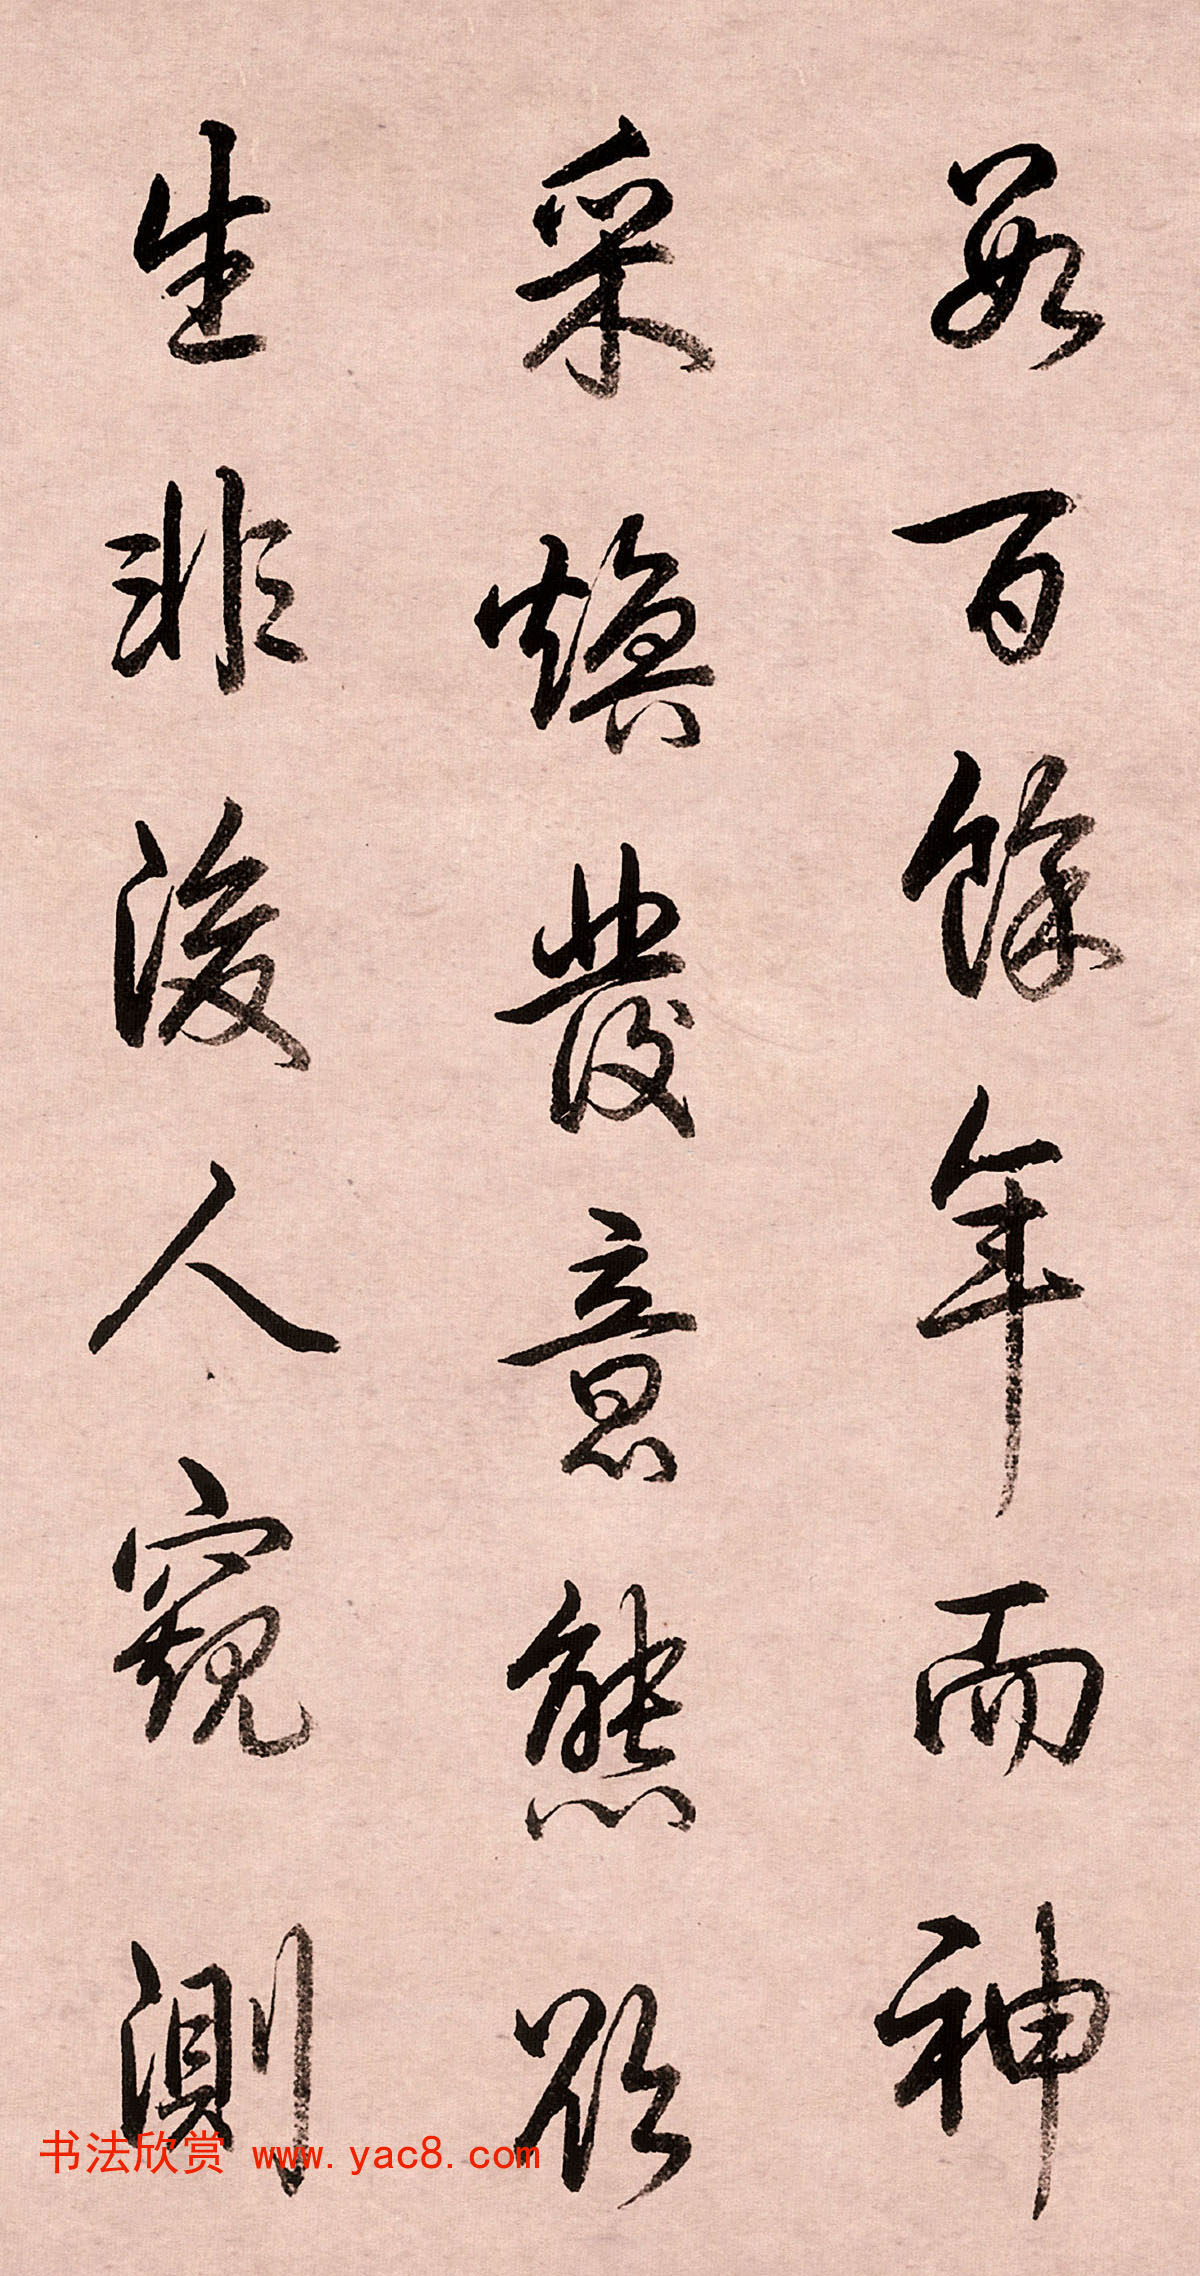 数百餘年而神
采煥發意態欲
生非後人窺測
书法欣赏 www.yac8.com